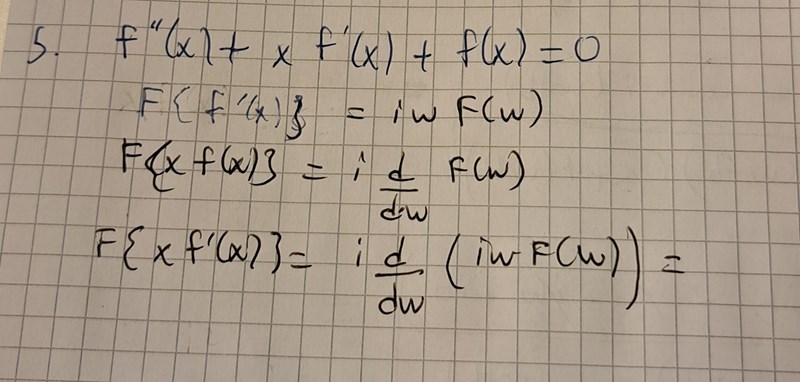 5. f''(x) + x f'(x) + f(x) = 0
F{f'(x)} = iw F(w)
F{x f(x)} = i d/dw F(w)
F{x f'(x)} = i d/dw (iw F(w)) =